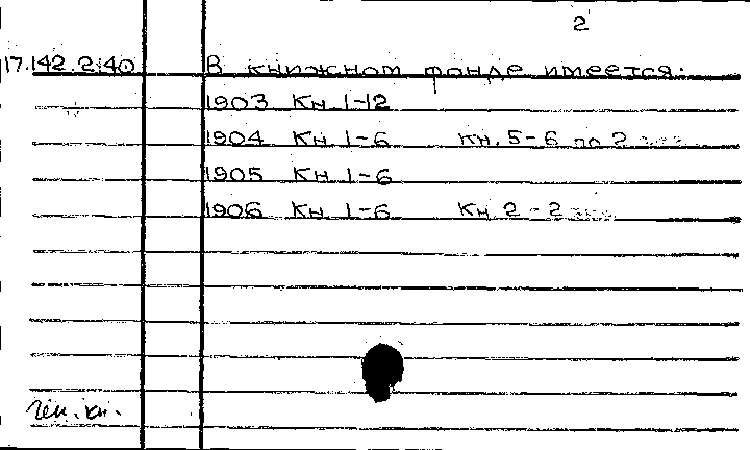 2
17.142.2.40 В книжном фонде имеется:
1903 Кн 1-12
1904 Кн 1-6 Кн. 5-6 по 2 экз.
1905 Кн 1-6
1906 Кн 1-6 Кн 2 - 2 экз.